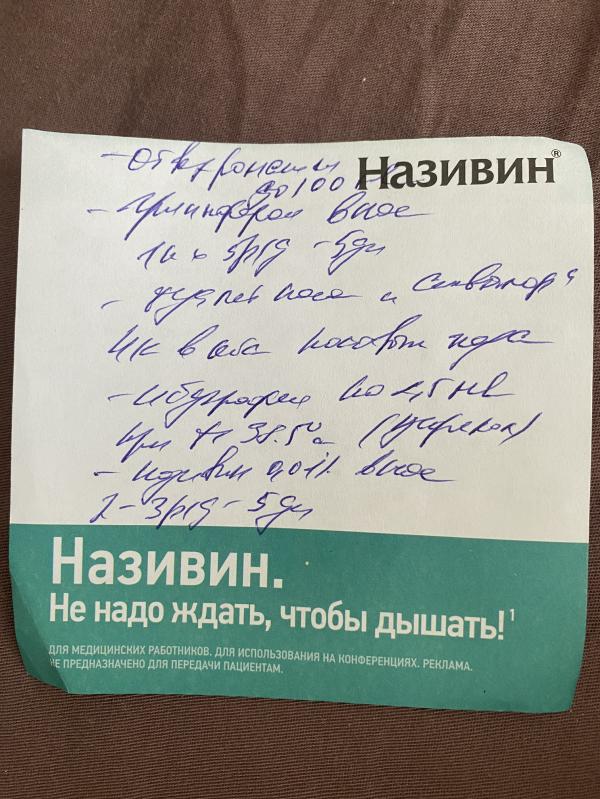 Називин®
до 100
- Гриппферон в нос
1к х 5р/д - 5дн
- туалет носа и
4к в оба носовых хода
- ибупрофен по 2,5 мл
при t> 38.5°С (нурофен)
- називин 0,01% в нос
2-3р/д - 5дн
Називин.
Не надо ждать, чтобы дышать!¹
ДЛЯ МЕДИЦИНСКИХ РАБОТНИКОВ. ДЛЯ ИСПОЛЬЗОВАНИЯ НА КОНФЕРЕНЦИЯХ. РЕКЛАМА.
НЕ ПРЕДНАЗНАЧЕНО ДЛЯ ПЕРЕДАЧИ ПАЦИЕНТАМ.